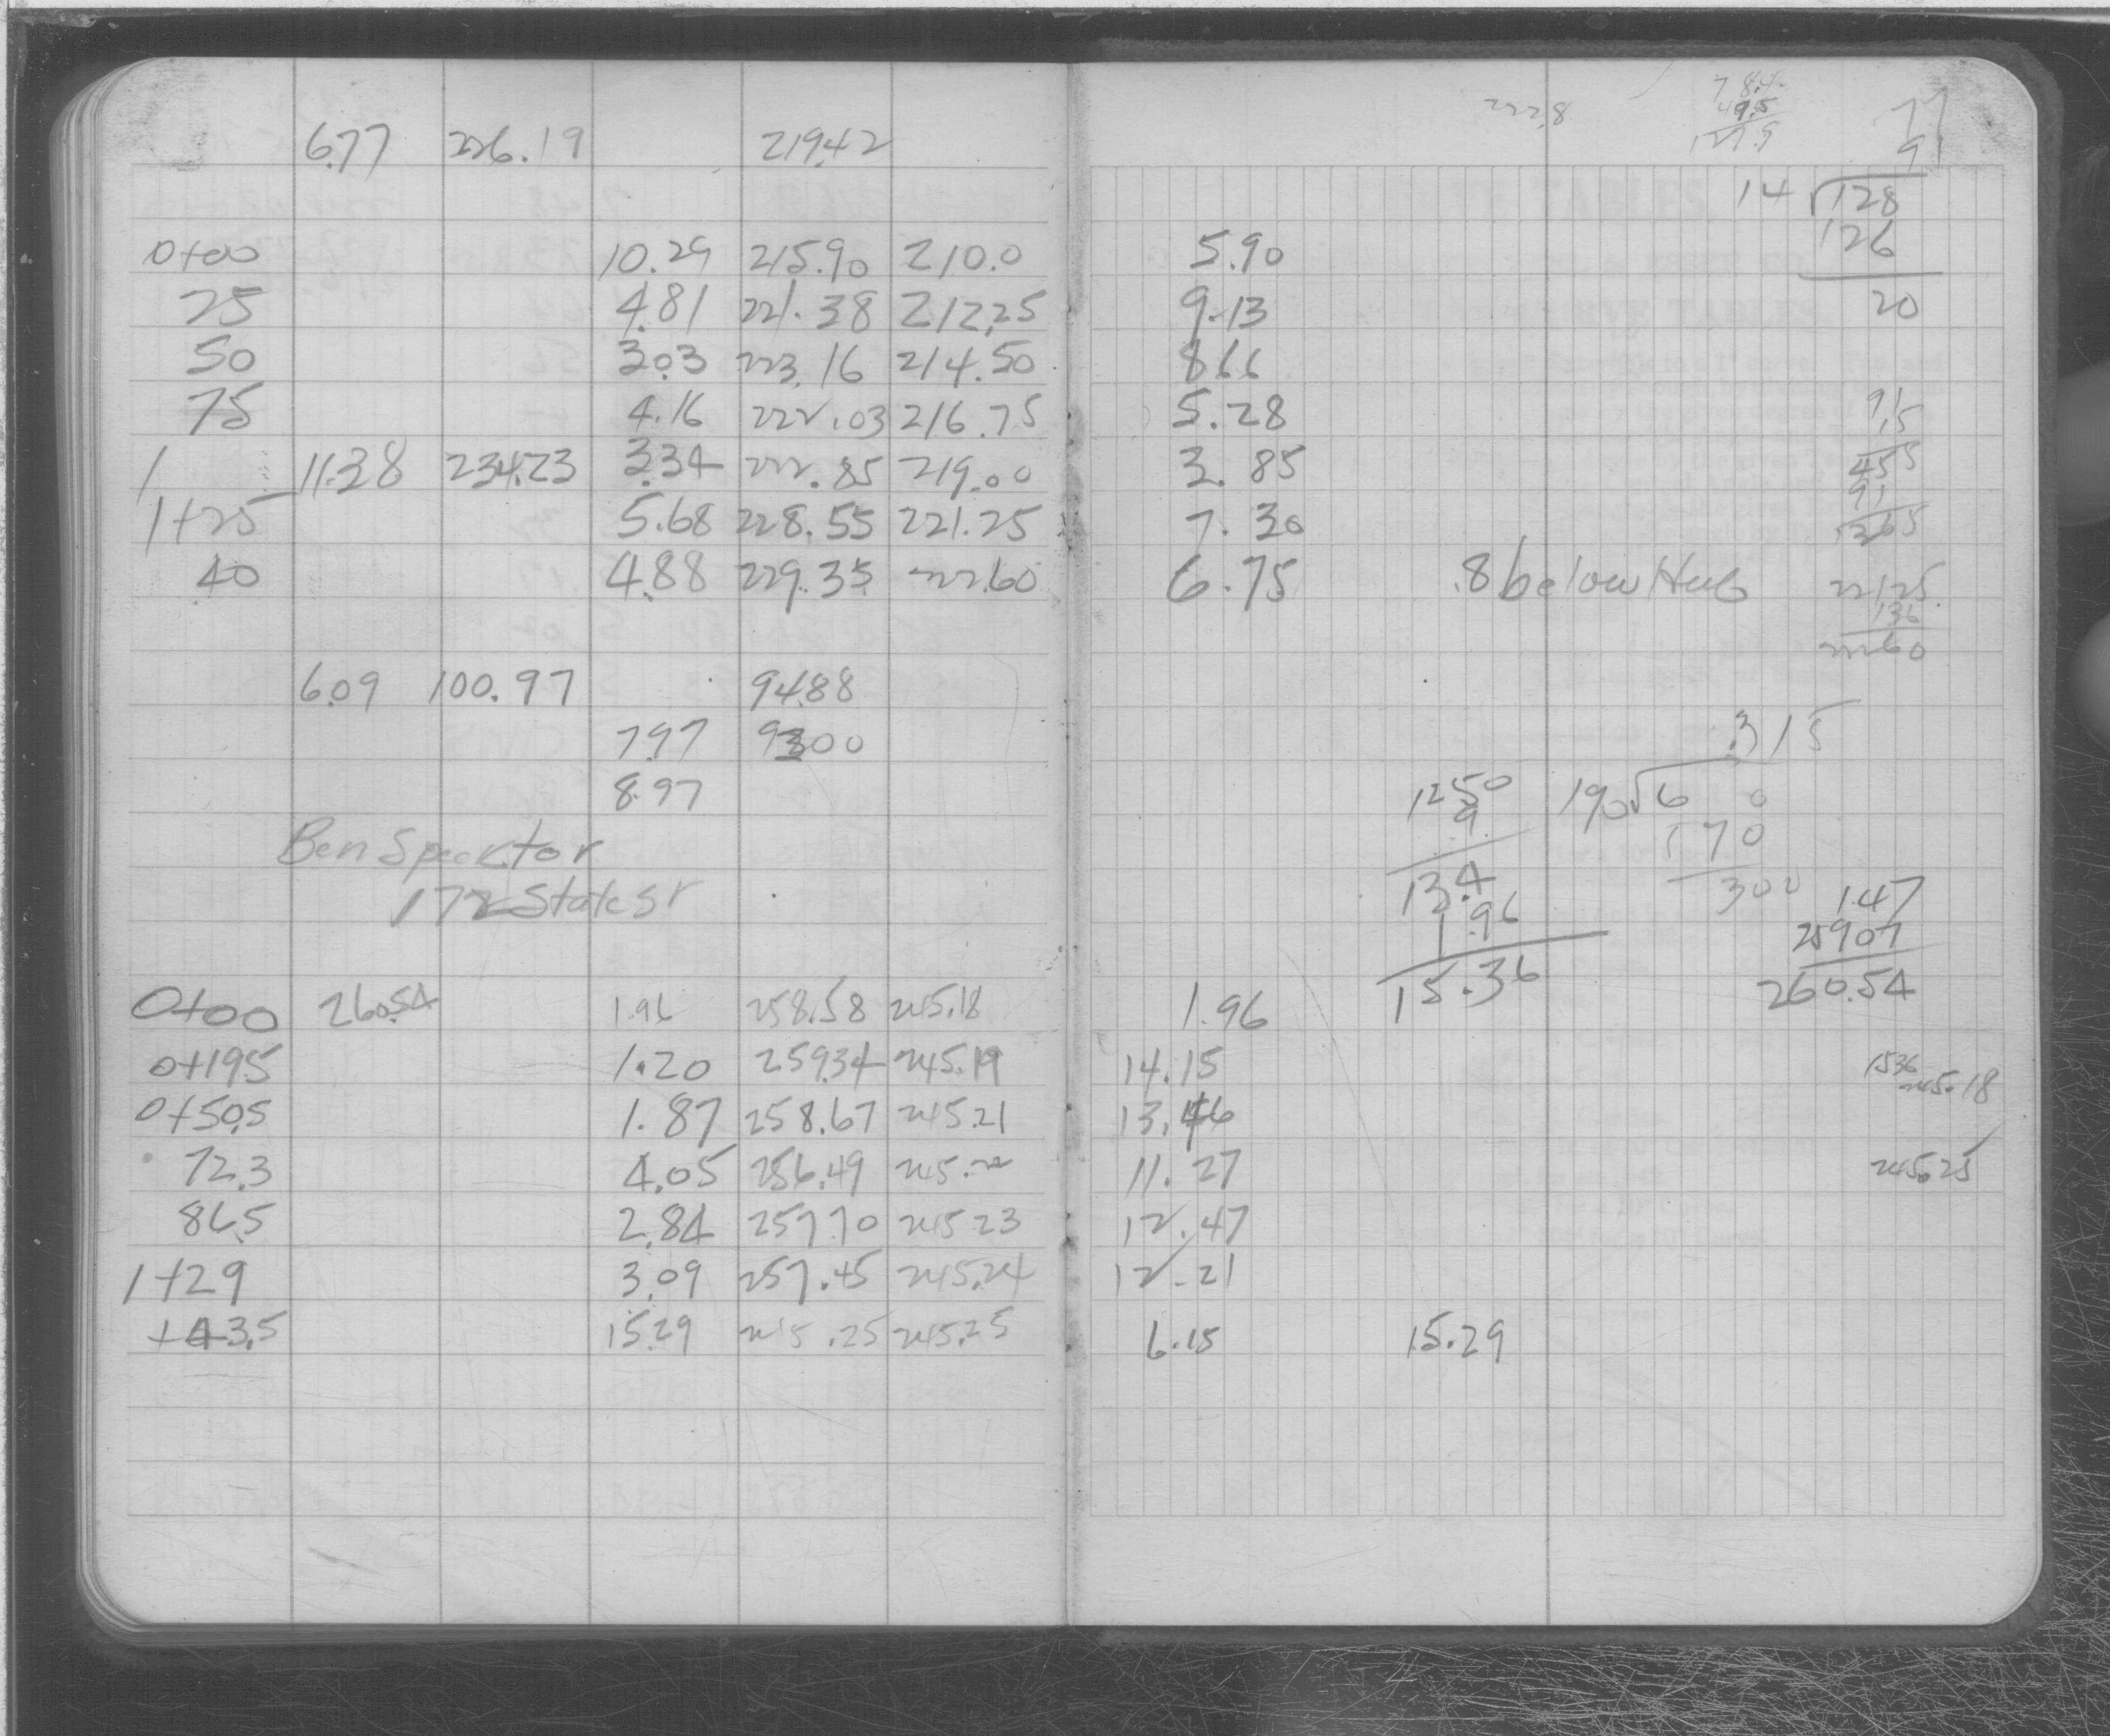 6.77 226.19 219.42
0+00 10.29 215.90 210.0
25 4.81 221.38 212.25
50 3.03 223.16 214.50
75 4.16 222.03 216.75
1 11.38 234.23 3.34 222.85 219.00
1+25 5.68 228.55 221.25
40 4.88 229.35 222.60
6.09 100.97 94.88
7.97 9300
8.97
Ben Specktor
172 State St
0+00 260.54 1.96 258.58 245.18
0+19.5 1.20 259.34 245.19
0+50.5 1.87 258.67 245.21
72.3 4.05 256.49 245.22
86.5 2.84 257.70 245.23
1+29 3.09 257.45 245.24
+43.5 15.29 245.25 245.25
222.8
77
78.4
49.5
127.9
9.1
14 128
126
20
5.90
9.13
8.66
5.28
3.85
7.30
6.75 .8 below Hub
91
15
455
91
1365
221.25
136
222.60
.315
190 6 0
170
300
1250
.9
13.4
1.96
15.36
1.47
259.07
260.54
1.96
14.15
13.46
11.27
12.47
12.21
6.15 15.29
1536
245.18
245.25